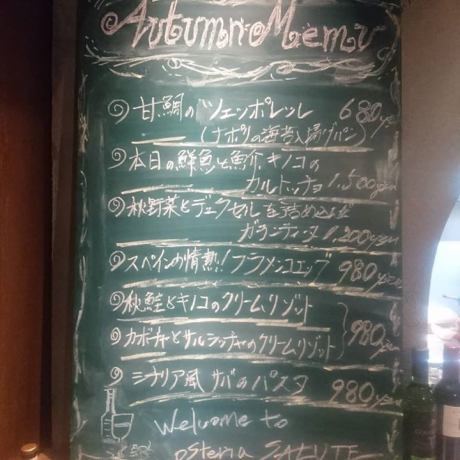 Autumn Memu
甘鯛のツェッポレッレ 680yen
(ナポリの海苔入揚げパン)
本日の鮮魚と魚介キノコの
カルトッチョ 1.500yen
秋野菜とデュクセルを詰め込んだ
ガランティーヌ 1.200yen
スペインの情熱!フラメンコエッグ 980yen
秋鮭とキノコのクリームリゾット
カボチャとサルシッチャのクリームリゾット 980yen
シチリア風 サバのパスタ 980yen
Welcome to
osteria SALUTE